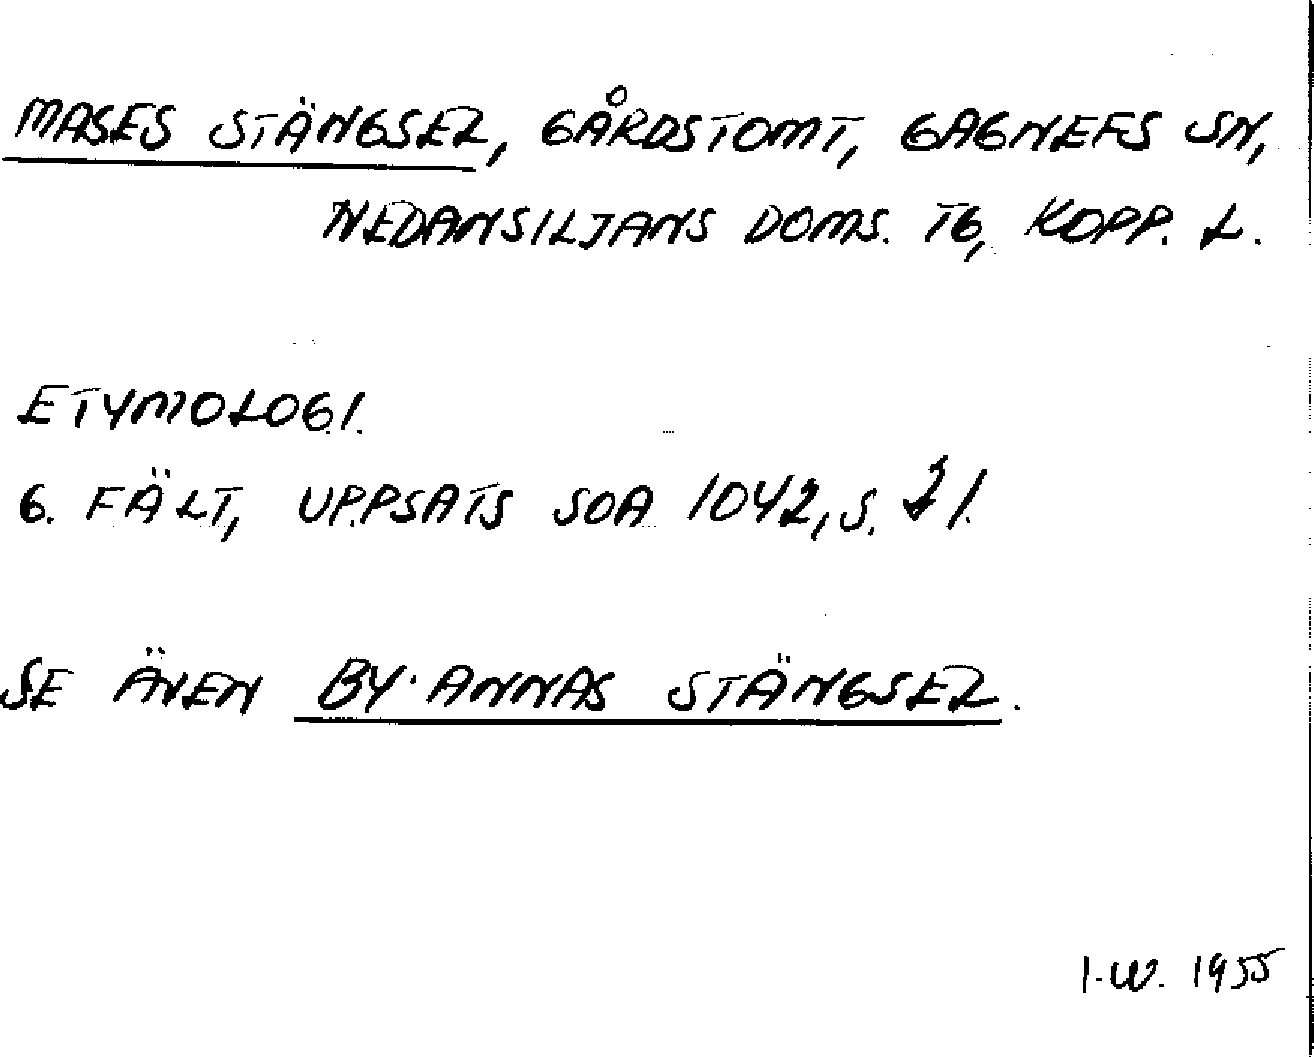 MASES STÄNGSEL, GÅRDSTOMT, GAGNEFS SN,
NEDANSILJANS DOMS. TG, KOPP. L.
ETYMOLOGI.
G. FÄLT, UPPSATS SOA 1042, S. 21.
SE ÄVEN BY-ANNAS STÄNGSEL.
I.W. 1955